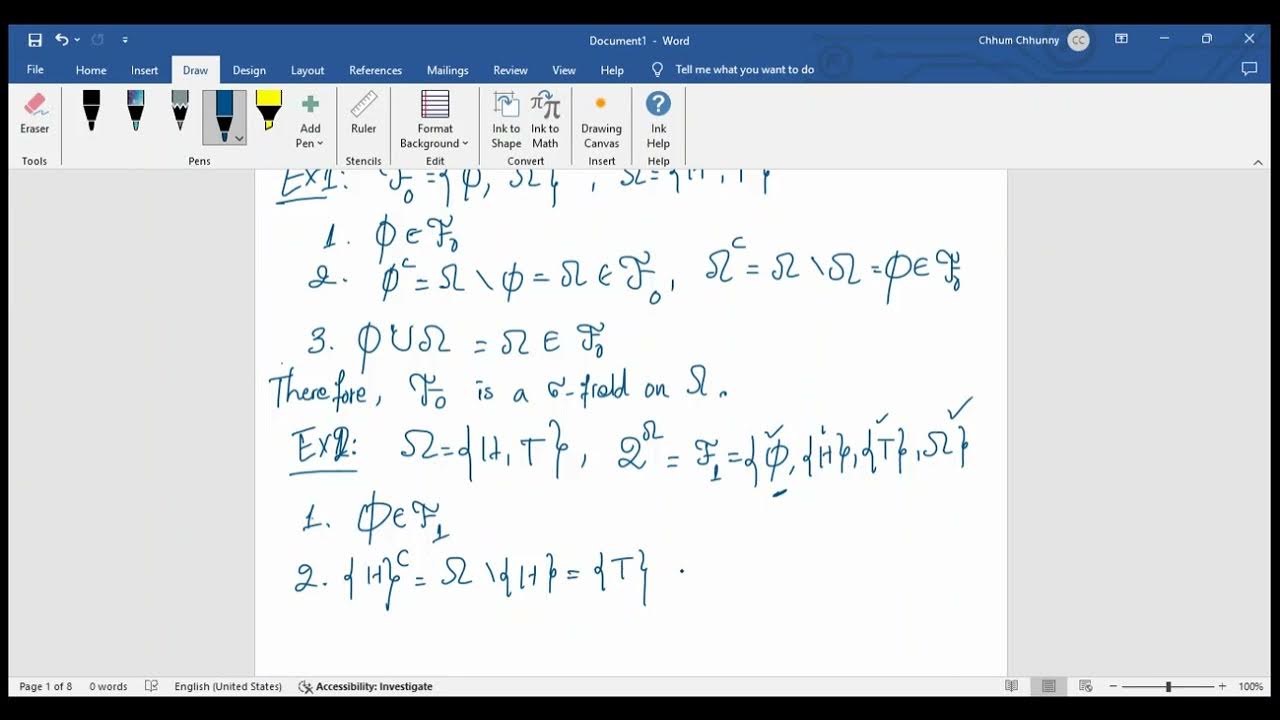 Document1 - Word
Chhum Chhunny CC
File Home Insert Draw Design Layout References Mailings Review View Help Tell me what you want to do
Eraser
Add Pen
Ruler
Format Background
Ink to Shape
Ink to Math
Drawing Canvas
Ink Help
Tools Pens Stencils Edit Convert Insert Help
Ex1: ℱ₀ = {ϕ, Ω} , Ω = {H, T}
1. ϕ ∈ ℱ₀
2. ϕᶜ = Ω \ ϕ = Ω ∈ ℱ₀, Ωᶜ = Ω \ Ω = ϕ ∈ ℱ₀
3. ϕ ∪ Ω = Ω ∈ ℱ₀
Therefore, ℱ₀ is a σ-field on Ω.
Ex2: Ω = {H, T}, 2^Ω = ℱ₁ = {ϕ, {H}, {T}, Ω}
1. ϕ ∈ ℱ₁
2. {H}ᶜ = Ω \ {H} = {T}
Page 1 of 8 0 words English (United States) Accessibility: Investigate 100%